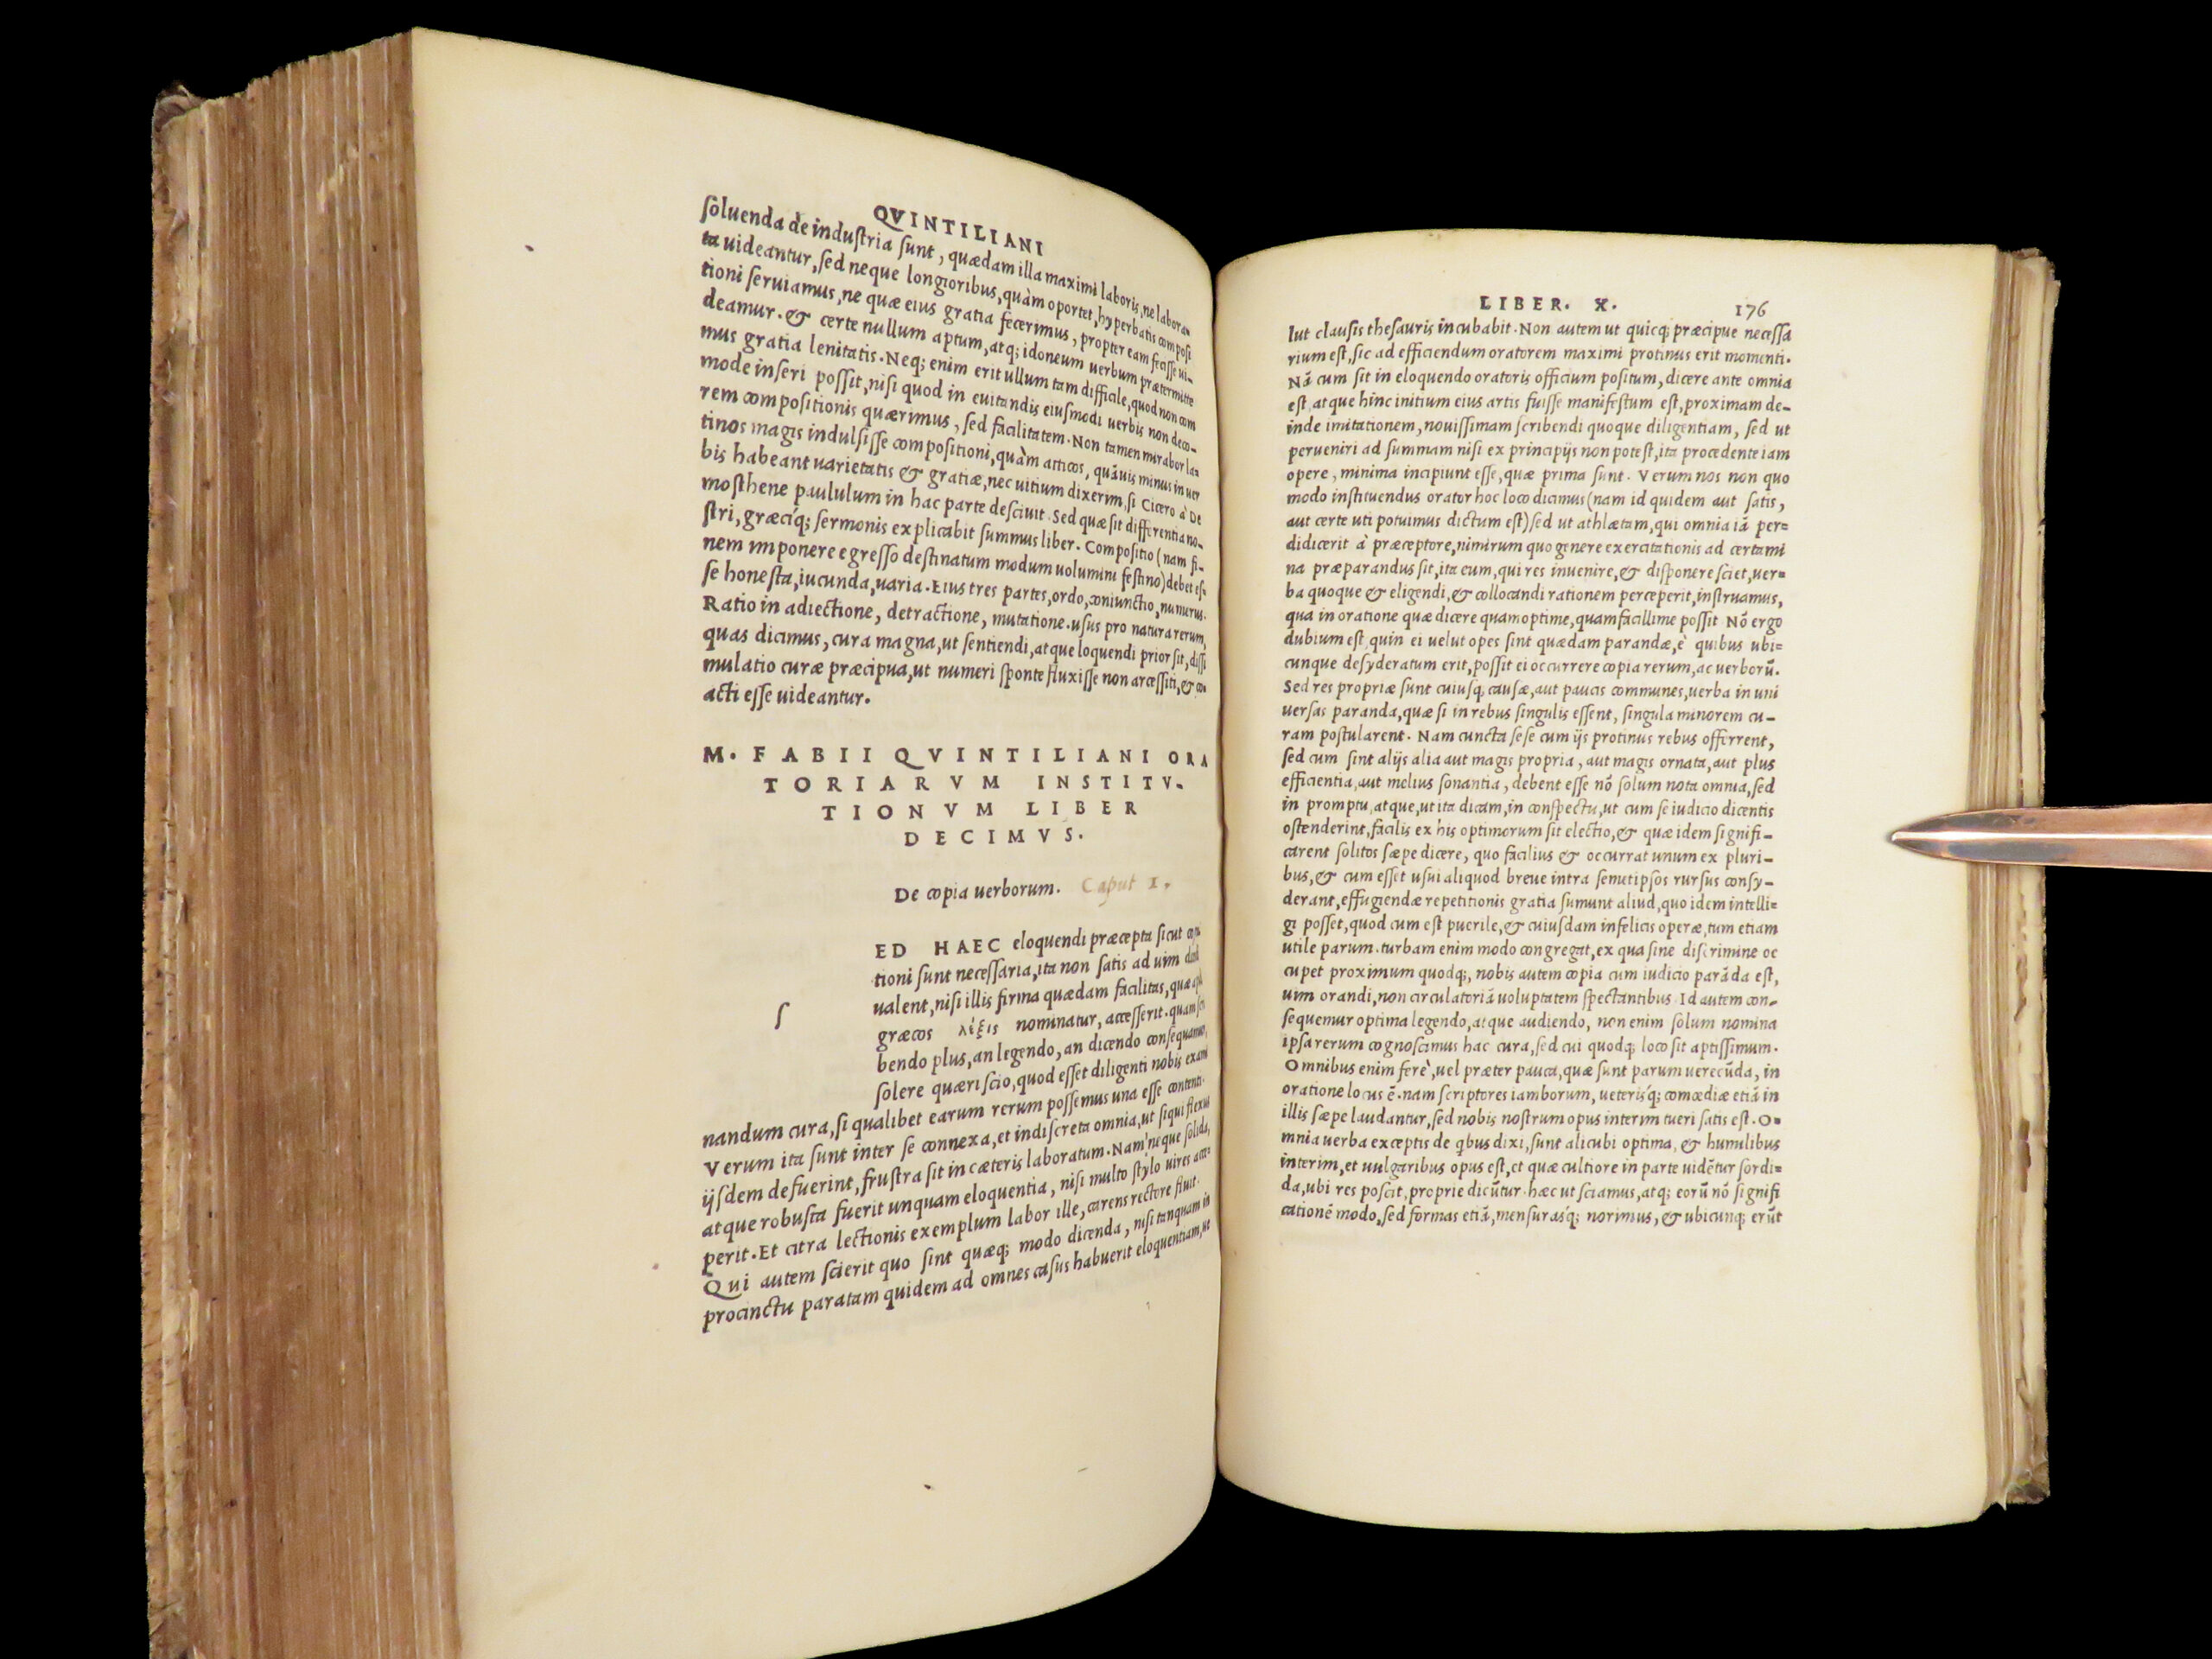 QVINTILIANI
ſoluenda de induſtria ſunt, quædam illa maximi laboris, ne labora=
ta uideantur, ſed neque longioribus, quàm oportet, hyperbatis compoſi
tioni ſeruiamus, ne quæ eius gratia fecerimus, propter eam feciſſe ui-
deamur. & certe nullum aptum, atq; idoneum uerbum prætermitte
mus gratia lenitatis. Neq; enim erit ullum tam difficile, quod non com
mode inſeri poſſit, niſi quod in euitandis eiuſmodi uerbis non deco-
rem compoſitionis quærimus, ſed facilitatem. Non tamen mirabor la=
tinos magis indulſiſſe compoſitioni, quàm atticos, quāuis minus in uer
bis habeant uarietatis & gratiæ, nec uitium dixerim, ſi Cicero à De
moſthene paululum in hac parte deſciuit. Sed quæ ſit differentia no-
ſtri, græciq́; ſermonis explicabit ſummus liber. Compoſitio (nam fi-
nem imponere egreſſo deſtinatum modum uolumini feſtino) debet eſ-
ſe honeſta, iucunda, uaria. Eius tres partes, ordo, coniunctio, numerus.
Ratio in adiectione, detractione, mutatione. uſus pro natura rerum,
quas dicimus, cura magna, ut ſentiendi, atque loquendi prior ſit, diſſi
mulatio curæ præcipua, ut numeri ſponte fluxiſſe non arceſſiti, & co
acti eſſe uideantur.
M. FABII QVINTILIANI ORA
TORIARVM INSTITV-
TIONVM LIBER
DECIMVS.
De copia uerborum. Caput 1.
ED HAEC eloquendi præcepta ſicut
tioni ſunt neceſſaria, ita non ſatis ad uim
ualent, niſi illis firma quædam facilitas, quæ
ſ
græcos λέξις nominatur, acceſſerit. quam ſcri
bendo plus, an legendo, an dicendo conſequamur,
ſolere quæri ſcio, quod eſſet diligenti nobis exami
nandum cura, ſi qualibet earum rerum poſſemus una eſſe contenti.
Verum ita ſunt inter ſe connexa, et indiſcreta omnia, ut ſiqui
ijſdem defuerint, fruſtra ſit in cæteris laboratum. Nam neque ſolida,
atque robuſta fuerit unquam eloquentia, niſi multo ſtylo uires acce-
perit. Et citra lectionis exemplum labor ille, carens rectore fluit.
Qui autem ſcierit quo ſint quæq; modo dicenda, niſi tanquam in
procinctu paratam quidem ad omnes caſus habuerit eloquentiam, ue
LIBER. X. 176
lut clauſis theſauris incubabit. Non autem ut quicq; præcipue neceſſa
rium eſt, ſic ad efficiendum oratorem maximi protinus erit momenti.
Nā cum ſit in eloquendo oratoris officium poſitum, dicere ante omnia
eſt, atque hinc initium eius artis fuiſſe manifeſtum eſt, proximam de-
inde imitationem, nouiſſimam ſcribendi quoque diligentiam, ſed ut
perueniri ad ſummam niſi ex principijs non poteſt, ita procedente iam
opere, minima incipiunt eſſe, quæ prima ſunt. Verum nos non quo
modo inſtituendus orator hoc loco dicimus (nam id quidem aut ſatis,
aut certe uti potuimus dictum eſt) ſed ut athlætam, qui omnia iā per=
didicerit à præceptore, nimirum quo genere exercitationis ad certami
na præparandus ſit, ita eum, qui res inuenire, & diſponere ſciet, uer=
ba quoque & eligendi, & collocandi rationem perceperit, inſtruamus,
qua in oratione quæ dicere quam optime, quam facillime poſſit. Nō ergo
dubium eſt, quin ei uelut opes ſint quædam parandæ, è quibus ubi=
cunque deſyderatum erit, poſſit ei occurrere copia rerum, ac uerborū.
Sed res propriæ ſunt cuiuſq; cauſæ, aut paucis communes, uerba in uni
uerſas paranda, quæ ſi in rebus ſingulis eſſent, ſingula minorem cu-
ram poſtularent. Nam cuncta ſeſe cum ijs protinus rebus offerrent,
ſed cum ſint alijs alia aut magis propria, aut magis ornata, aut plus
efficientia, aut melius ſonantia, debent eſſe nō ſolum nota omnia, ſed
in promptu, atque, ut ita dicam, in conſpectu, ut cum ſe iudicio dicentis
oſtenderint, facilis ex his optimorum ſit electio, & quæ idem ſignifi-
carent ſolitos ſæpe dicere, quo facilius & occurrat unum ex pluri-
bus, & cum eſſet uſui aliquod breue intra ſemetipſos rurſus conſy-
derant, effugiendæ repetitionis gratia ſumunt aliud, quo idem intelli=
gi poſſet, quod cum eſt puerile, & cuiuſdam infelicis operæ, tum etiam
utile parum. turbam enim modo congregat, ex qua ſine diſcrimine oc
cupet proximum quodq;, nobis autem copia cum iudicio parāda eſt,
uim orandi, non circulatoriā uoluptatem ſpectantibus. Id autem con-
ſequemur optima legendo, atque audiendo, non enim ſolum nomina
ipſa rerum cognoſcimus hac cura, ſed cui quodq; loco ſit aptiſſimum.
Omnibus enim ferè, uel præter pauca, quæ ſunt parum uerecūda, in
oratione locus ē. nam ſcriptores iamborum, ueteriſq́; comœdiæ etiā in
illis ſæpe laudantur, ſed nobis noſtrum opus interim tueri ſatis eſt. O=
mnia uerba exceptis de qbus dixi, ſunt alicubi optima, & humilibus
interim, et uulgaribus opus eſt, et quæ cultiore in parte uidētur ſordi=
da, ubi res poſcit, proprie dicūtur. hæc ut ſciamus, atq; eorū nō ſignifi
cationē modo, ſed formas etiā, menſuraſq́; norimus, & ubicunq; erūt